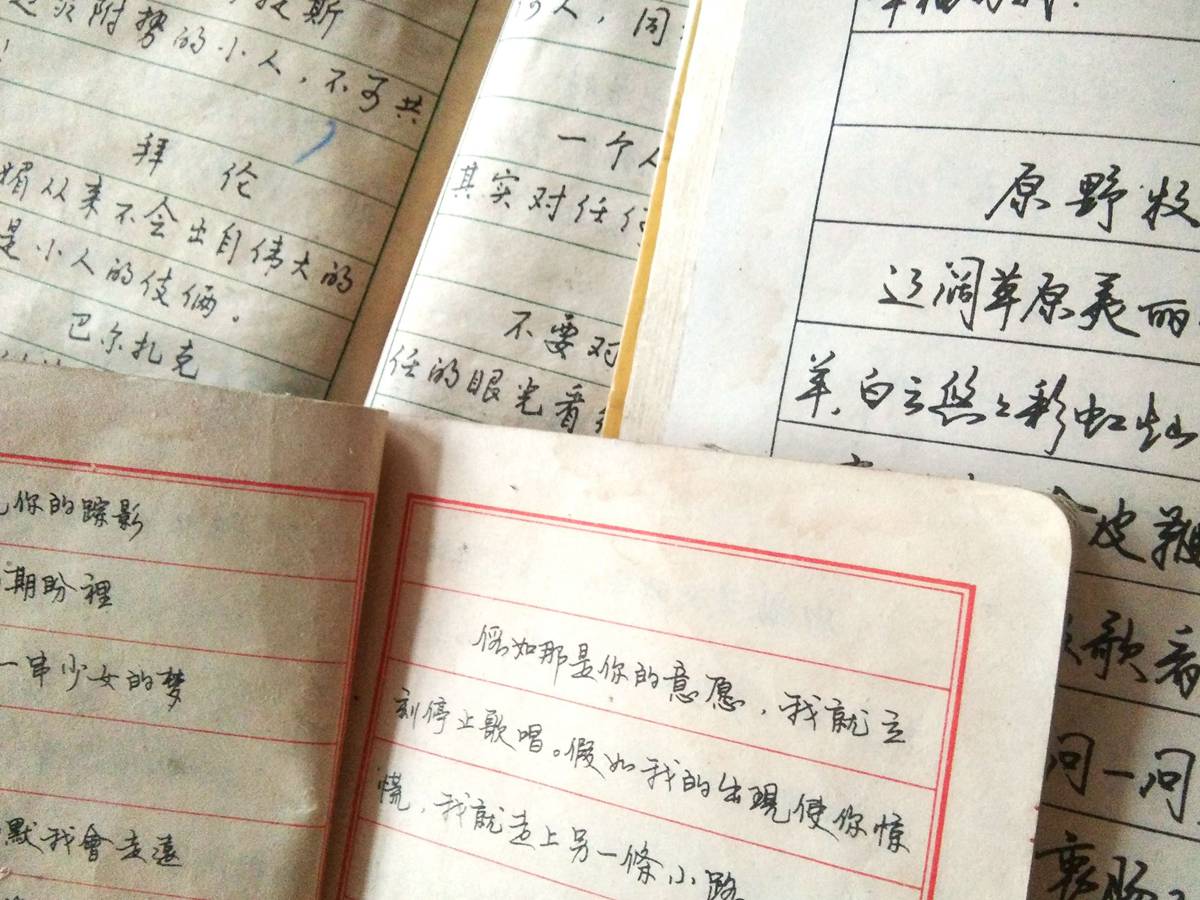 斯
附势的小人，不可共
拜 伦
媚从来不会出自伟大的
是小人的伎俩。
巴尔扎克
人，同
一个人
其实对任何
不要对
任的眼光看
原野牧
辽阔草原美丽
羊，白云悠々彩虹灿
皮鞭
歌音
问一问
衷肠
你的踪影
期盼裡
一串少女的梦
默我會走遠
假如那是你的意愿，我就立
刻停止歌唱。假如我的出現使你惊
慌，我就走上另一條小路